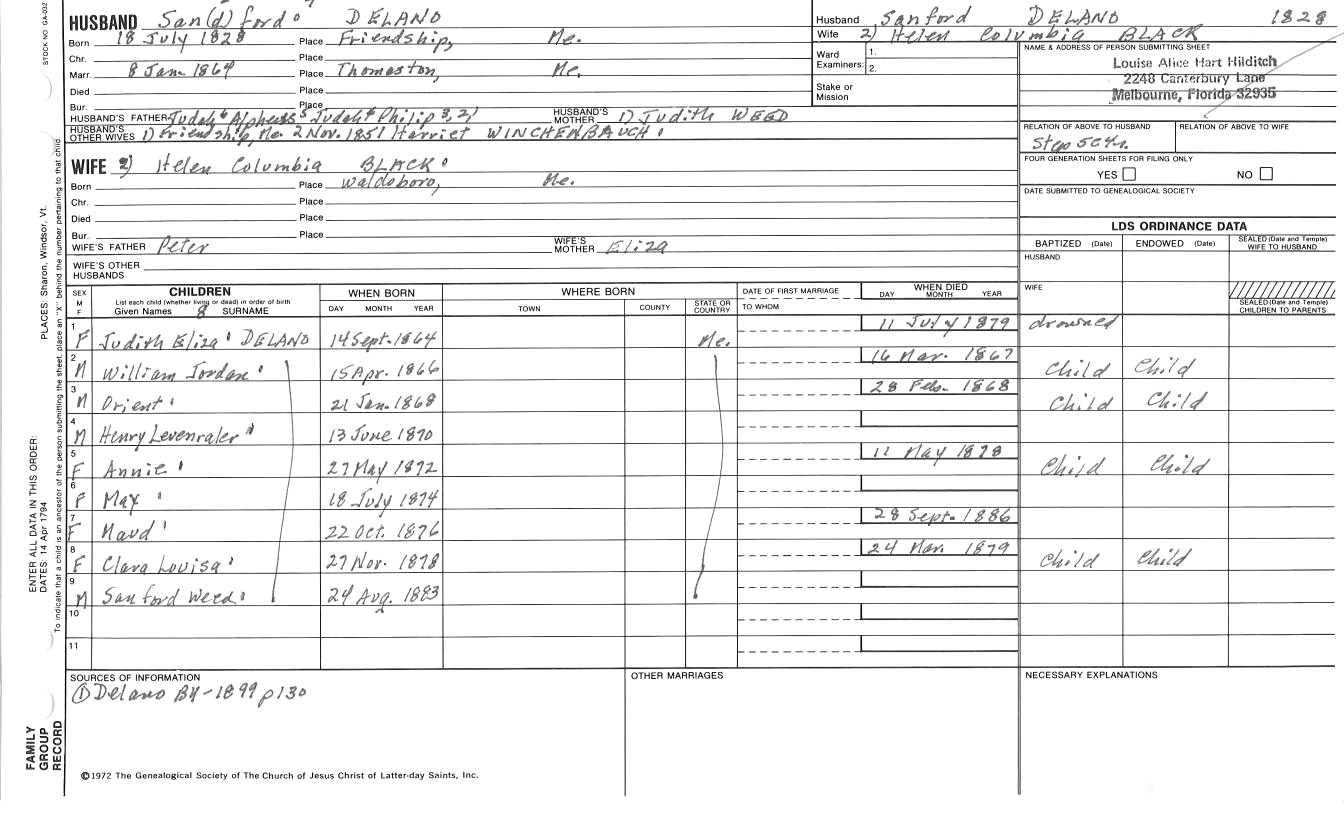 HUSBAND San(d)ford¹ DELANO
Born 18 July 1828 Place Friendship, Me.
Chr. Place
Marr. 8 Jan. 1864 Place Thomaston, Me.
Died Place
Bur. Place
HUSBAND'S FATHER Judah⁶ Alpheus⁵ Judah⁴ Philip 3, 2, 1 HUSBAND'S MOTHER 1) Judith WEED
HUSBAND'S OTHER WIVES 1) Friendship, Me. 2 Nov. 1851 Harriet WINCHENBAUCH¹
WIFE 2) Helen Columbia BLACK¹
Born Place Waldoboro, Me.
Chr. Place
Died Place
Bur. Place
WIFE'S FATHER Peter WIFE'S MOTHER Eliza
WIFE'S OTHER HUSBANDS
Husband Sanford DELANO 1828
Wife 2) Helen Columbia BLACK
Ward 1.
Examiners: 2.
Stake or Mission
NAME & ADDRESS OF PERSON SUBMITTING SHEET
Louise Alice Hart Hilditch
2248 Canterbury Lane
Melbourne, Florida 32935
RELATION OF ABOVE TO HUSBAND RELATION OF ABOVE TO WIFE
FOUR GENERATION SHEETS FOR FILING ONLY
YES NO
DATE SUBMITTED TO GENEALOGICAL SOCIETY
LDS ORDINANCE DATA
BAPTIZED (Date) ENDOWED (Date) SEALED (Date and Temple) WIFE TO HUSBAND
HUSBAND
WIFE
SEALED (Date and Temple) CHILDREN TO PARENTS
SEX M F CHILDREN WHEN BORN WHERE BORN DATE OF FIRST MARRIAGE WHEN DIED
List each child (whether living or dead) in order of birth
Given Names 8 SURNAME DAY MONTH YEAR TOWN COUNTY STATE OR COUNTRY TO WHOM DAY MONTH YEAR
1 F Judith Eliza¹ DELANO 14 Sept. 1864 Me. 11 July 1879 drowned
2 M William Jordan¹ 15 Apr. 1866 16 Mar. 1867 Child Child
3 M Orient¹ 21 Jan. 1868 28 Feb. 1868 Child Child
4 M Henry Levenraler¹ 13 June 1870
5 F Annie¹ 27 May 1872 11 May 1878 Child Child
6 F May¹ 18 July 1874
7 F Maud¹ 22 Oct. 1876 28 Sept. 1886
8 F Clara Louisa¹ 27 Nov. 1878 24 Mar. 1879 Child Child
9 M Sanford Weed¹ 24 Aug. 1883
10
11
SOURCES OF INFORMATION OTHER MARRIAGES NECESSARY EXPLANATIONS
① Delano BY-1899 p130
©1972 The Genealogical Society of The Church of Jesus Christ of Latter-day Saints, Inc.
STOCK NO GA-032
PLACES: Sharon, Windsor, Vt.
To indicate that a child is an ancestor of the person submitting the sheet, place an "X" behind the number pertaining to that child.
ENTER ALL DATA IN THIS ORDER:
DATES: 14 Apr 1794
FAMILY
GROUP
RECORD